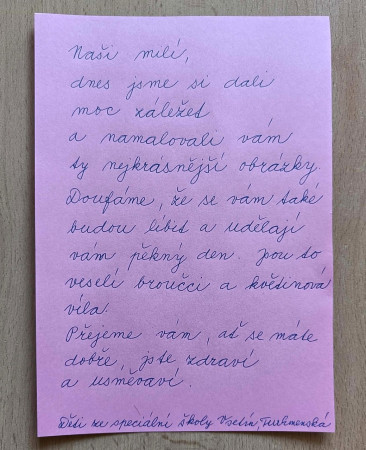 Naši milí,
dnes jsme si dali
moc záležet
a namalovali vám
ty nejkrásnější obrázky.
Doufáme, že se vám také
budou líbit a udělají
vám pěkný den. Jsou to
veselí broučci a květinová
víla.
Přejeme vám, ať se máte
dobře, jste zdraví
a usměvaví.
Děti ze speciální školy Vsetín, Turkmenská